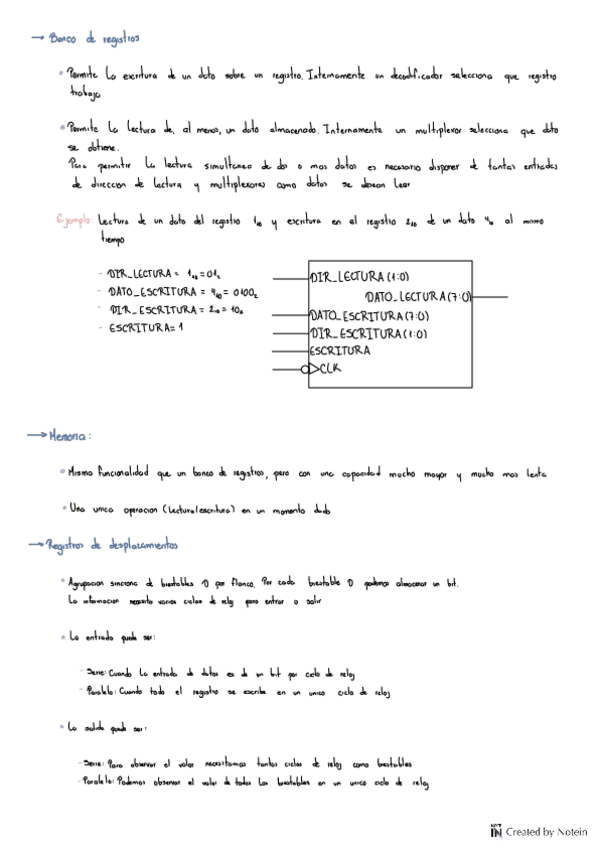 → Banco de registros
• Permite la escritura de un dato sobre un registro. Internamente un decodificador selecciona que registro
trabaja
• Permite la lectura de, al menos, un dato almacenado. Internamente un multiplexor selecciona que dato
se obtiene.
Para permitir la lectura simultanea de dos o mas datos es necesario disponer de tantas entradas
de direccion de lectura y multiplexores como datos se desean leer
Ejemplo: Lectura de un dato del registro 1₁₀ y escritura en el registro 2₁₀ de un dato 4₁₀ al mismo
tiempo
- DIR_LECTURA = 1₁₀ = 01₂
- DATO_ESCRITURA = 4₁₀ = 0100₂
- DIR_ESCRITURA = 2₁₀ = 10₂
- ESCRITURA = 1
DIR_LECTURA (1:0)
DATO_LECTURA (7:0)
DATO_ESCRITURA (7:0)
DIR_ESCRITURA (1:0)
ESCRITURA
CLK
→ Memoria:
• Misma funcionalidad que un banco de registros, pero con una capacidad mucho mayor y mucho mas lenta
• Una unica operacion (lectura/escritura) en un momento dado
→ Registros de desplazamientos
• Agrupacion sincrona de biestables D por flanco. Por cada biestable D podemos almacenar un bit.
La informacion necesita varios ciclos de reloj para entrar o salir
• La entrada puede ser:
- Serie: Cuando la entrada de datos es de un bit por ciclo de reloj
- Paralelo: Cuando todo el registro se escribe en un unico ciclo de reloj
• La salida puede ser:
- Serie: Para observar el valor necesitamos tantos ciclos de reloj como biestables
- Paralelo: Podemos observar el valor de todos los biestables en un unico ciclo de reloj
NOTE IN Created by Notein